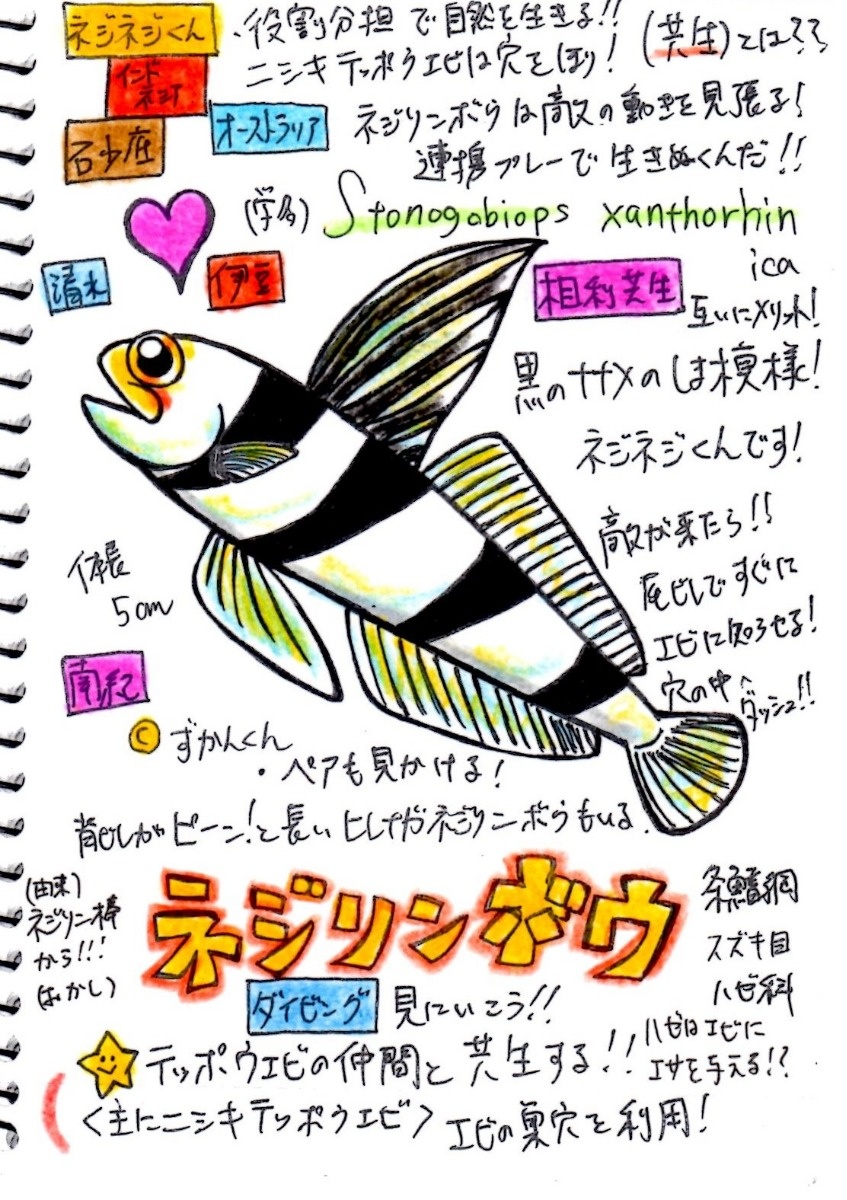 ネジネジくん
・役割分担で自然を生きる!!
(共生)とは??
インドネシア
ニシキテッポウエビは穴をほり!
オーストラリア
ネジリンボウは敵の動きを見張る!
石少底
連携プレーで生きぬくんだ!!
(学名)
Stonogobiops xanthorhin
ica
清水
伊豆
相利共生
互いにメリット!
黒のナナメのしま模様!
ネジネジくんです!
敵が来たら!!
尾ビレですぐに
エビに知らせる!
穴の中へ
ダッシュ!!
体長
5cm
南紀
© ずかんくん
・ペアも見かける!
背ビレがピーン!と長いヒレナガネジリンボウもいる.
(由来)
ネジリン棒
から!!!
(おかし)
ネジリンボウ
条鰭綱
スズキ目
ハゼ科
ダイビング 見にいこう!!
ハゼはエビに
エサを与える!?
テッポウエビの仲間と共生する!!
<主にニシキテッポウエビ> エビの巣穴を利用!